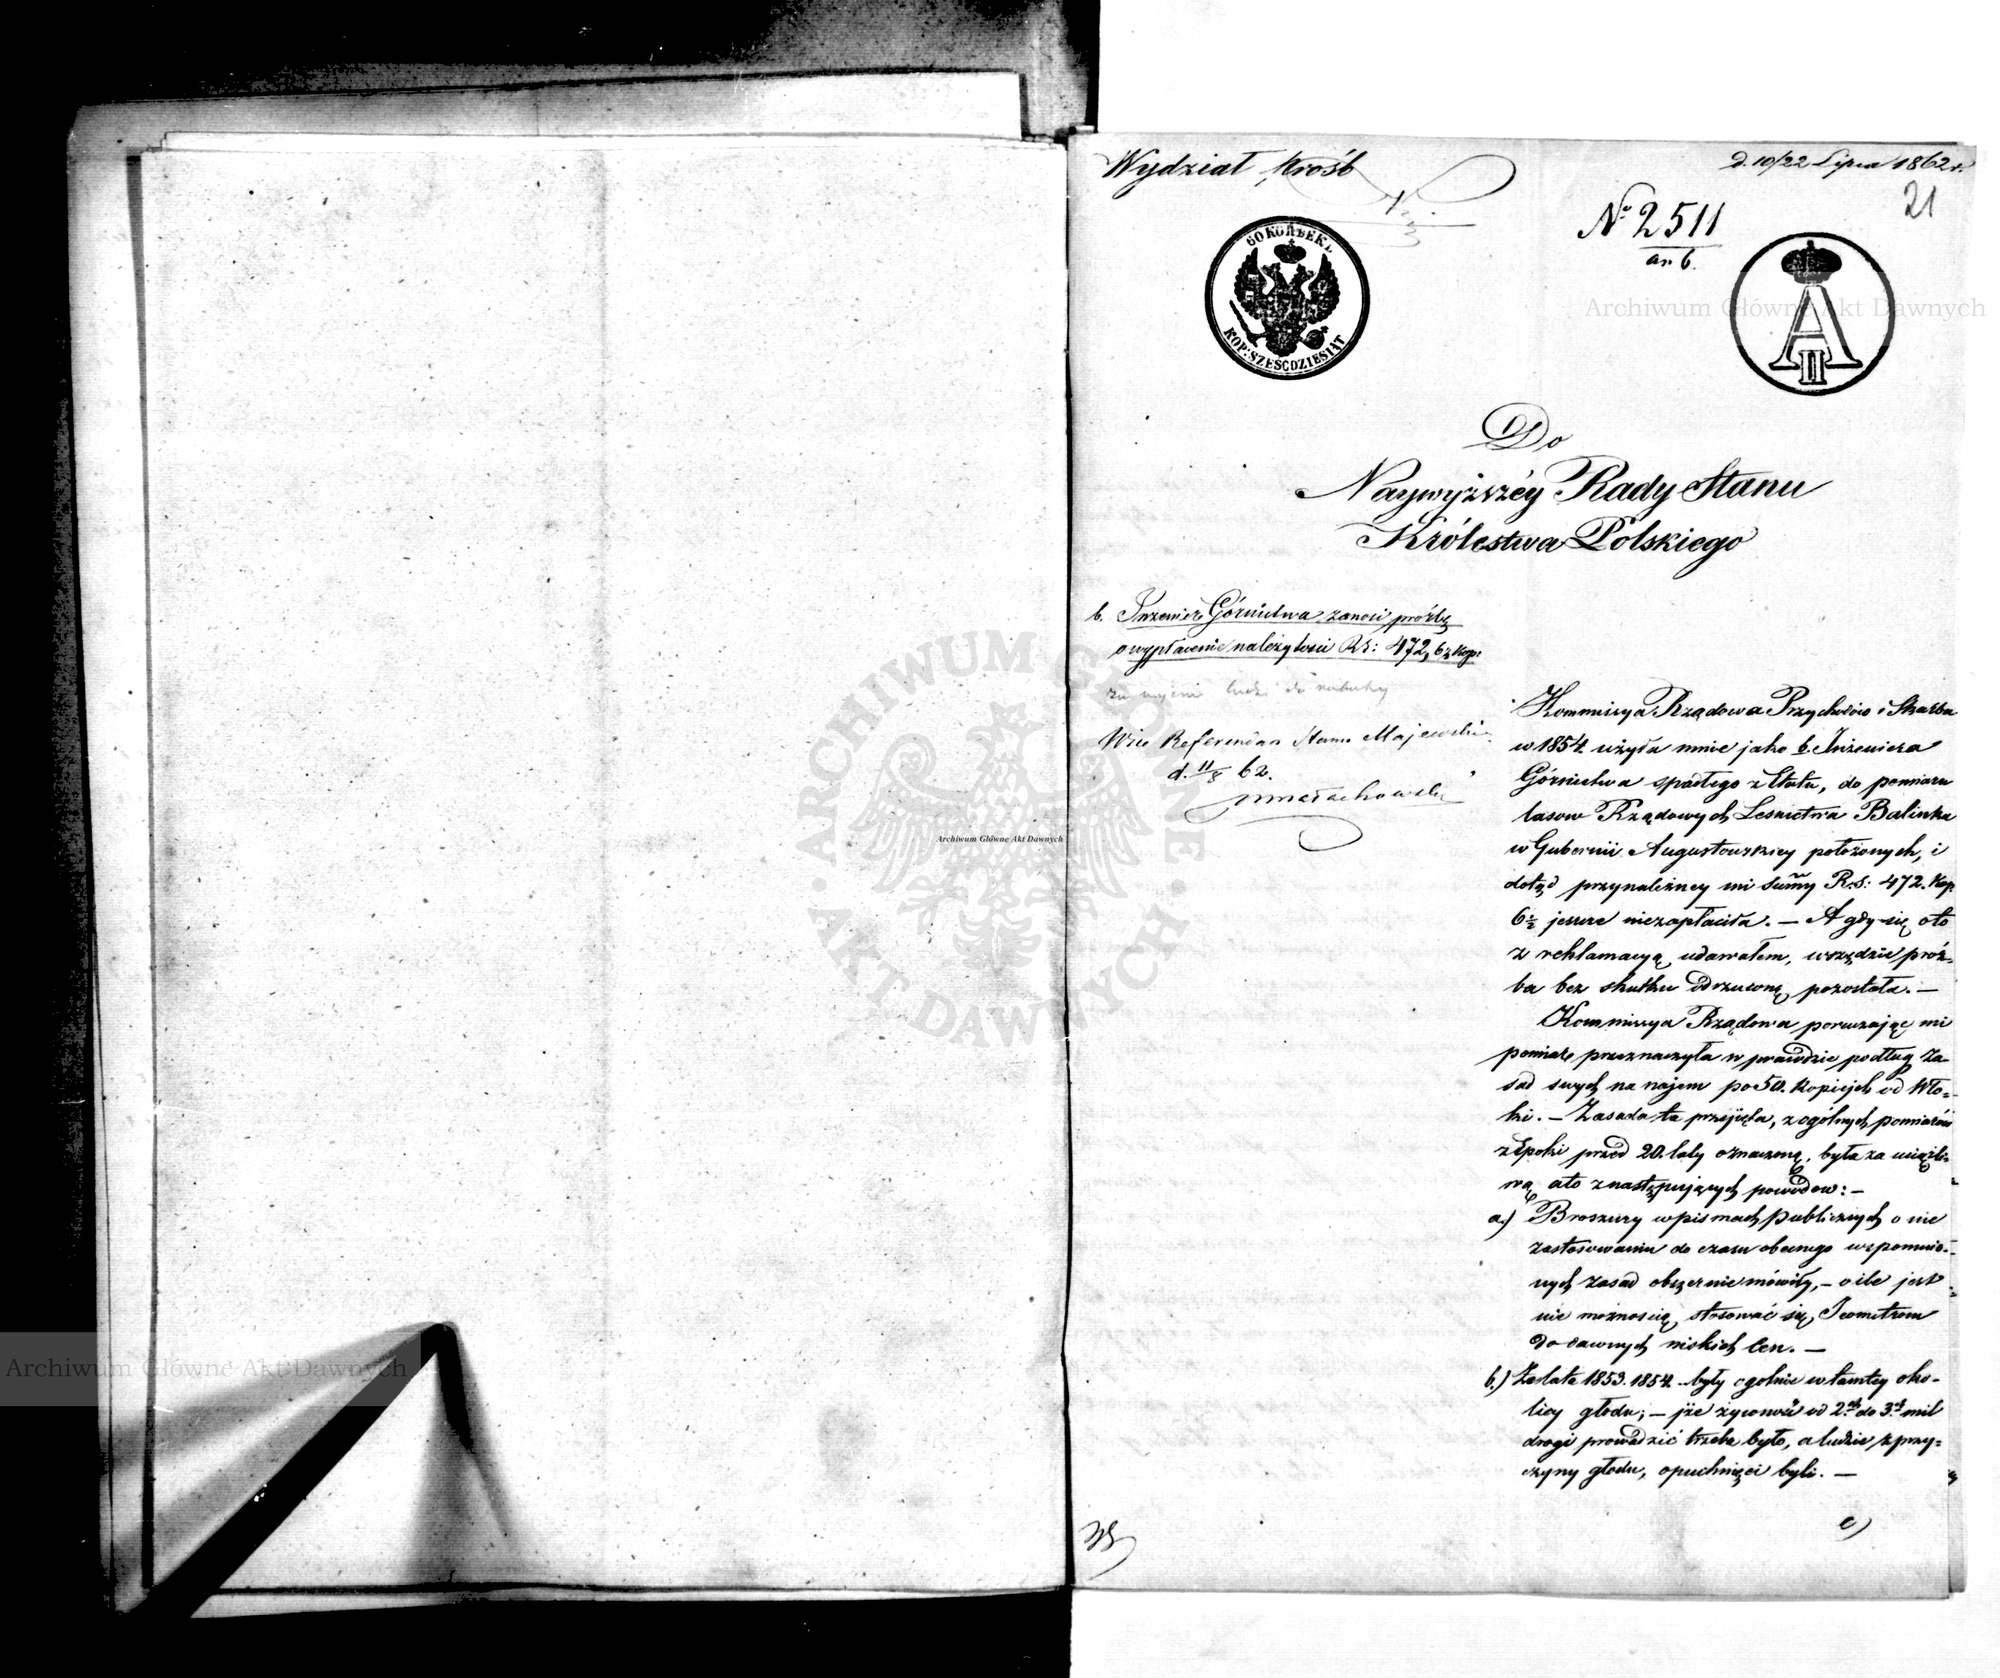 Wydział Próśb
d. 10/22 Lipca 1862 r.
21
№ 2511
an 6.
60 KOPEEK.
KOP: SZEŚĆDZIESIĄT
A II
Do
Naywyższéy Rady Stanu
Królestwa Polskiego
b. Inżenier Górnictwa zanosi prośbę
o wypłacenie należytości RS: 472, 6½ kop:
ludzi do
Wice Referendarz Stanu Majewski
d. 11/8 62.
Małachowski
Kommissya Rządowa Przychodów i Skarbu
w 1854. użyła mnie jako b. Inżeniera
Górnictwa spadłego z Etatu, do pomiaru
lasow Rządowych Leśnictwa Balinka
w Gubernii Augustowskiey położonych, i
dotąd przynależney mi sum̃y R.S: 472. kop.
6½ jeszcze niezapłaciła. — A gdy się oto
z reklamacyą udawałem, wszędzie proź-
ba bez skutku odrzuconą pozostała. —
Kommissya Rządowa poruczając mi
pomiar przeznaczyła w prawdzie podług za-
sad swych na najem po 50. kopiejek od Wło-
ki. — Zasada ta przyjęta, z ogólnych pomiarów
z Epoki przed 20. laty oznaczoną, była za uciążli-
wą ato z następujących powodow: —
a.) Broszury w pismach publicznych o nie
zastosowaniu do czasu obecnego wspomnio-
nych zasad obszernie mówiły, — o ile jest
nie możnością stosować się Jeometrom
do dawnych niskich cen. —
b.) Że lata 1853. 1854. były ogolnie w tamtey oko-
licy głodu; — że żywność od 2ch do 3ch mil
drogi prowadzić trzeba było, a ludzie z przy-
czyny głodu, opuchnięci byli. —
c)
Archiwum Główne Akt Dawnych
Archiwum Główne Akt Dawnych
Archiwum Główne Akt Dawnych
ARCHIWUM GŁÓWNE
AKT DAWNYCH